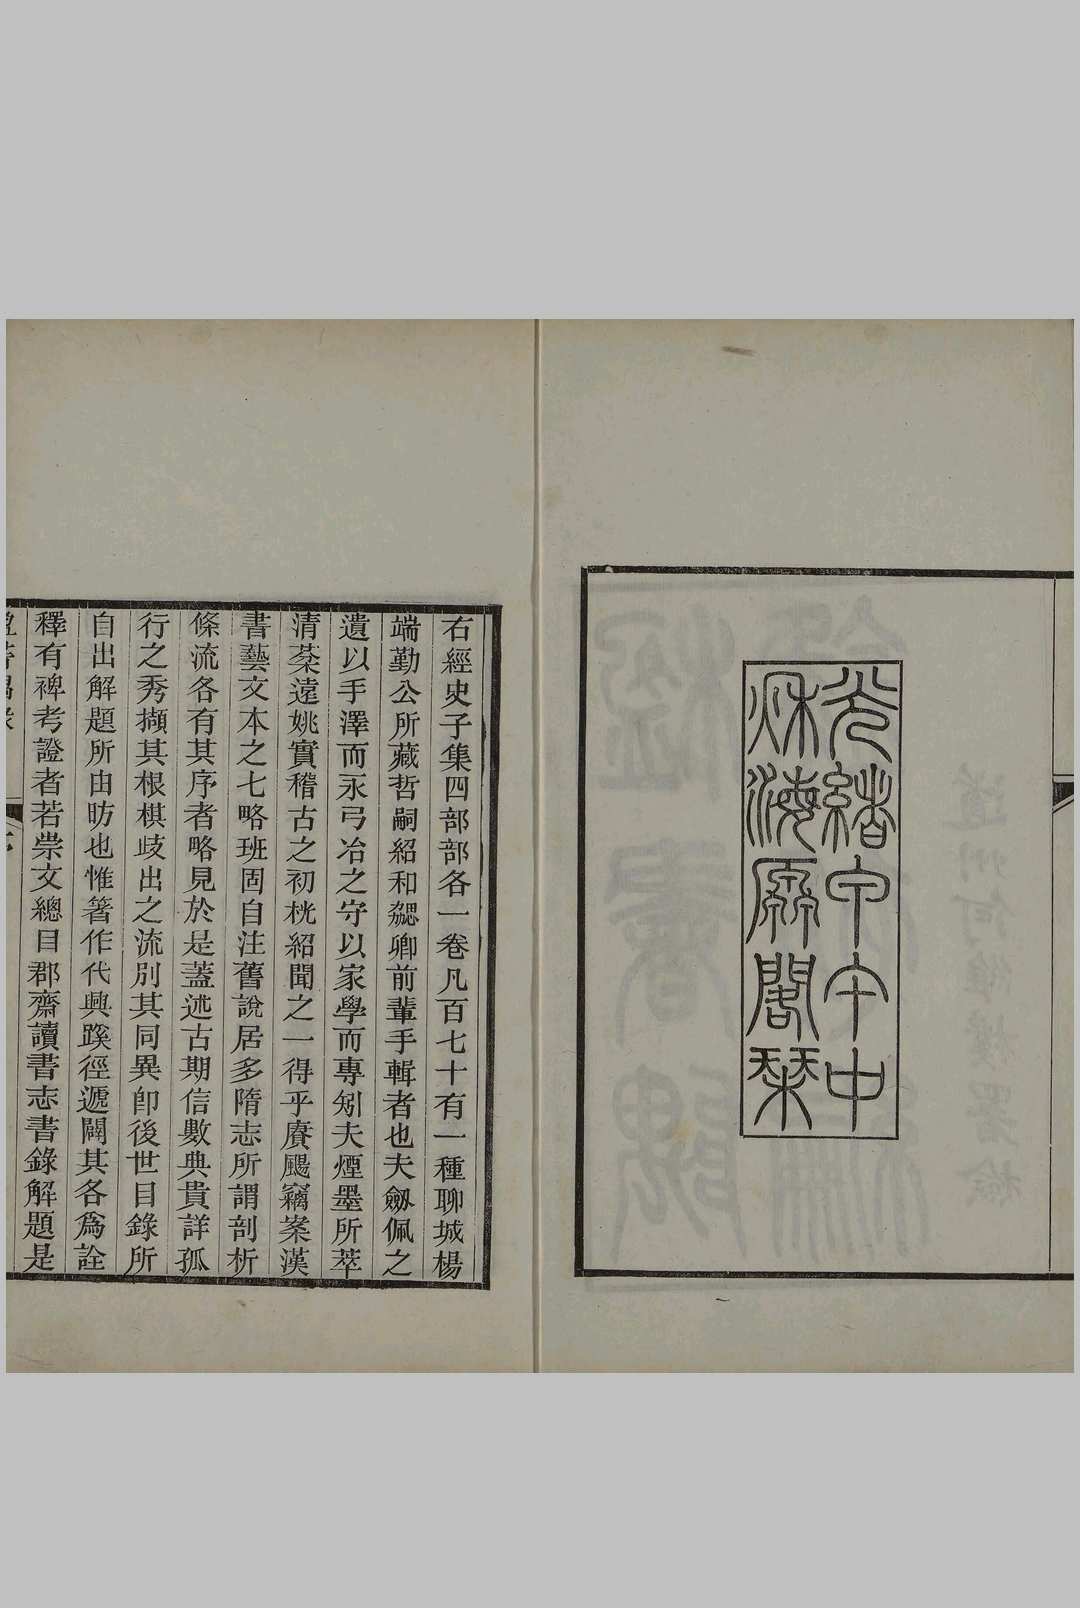 光緒甲午中
秌海原閣栞
右經史子集四部部各一卷凡百七十有一種聊城楊
端勤公所藏哲嗣紹和勰卿前輩手輯者也夫劔佩之
遺以手澤而永弓冶之守以家學而專矧夫煙墨所萃
清棻遠姚實稽古之初桄紹聞之一得乎賡颺竊案漢
書藝文本之七略班固自注舊說居多隋志所謂剖析
條流各有其序者略見於是蓋述古期信數典貴詳孤
行之秀擷其根棋歧出之流別其同異卽後世目錄所
自出解題所由昉也惟箸作代興蹊徑遞闢其各爲詮
釋有裨考證者若崇文總目郡齋讀書志書錄解題是